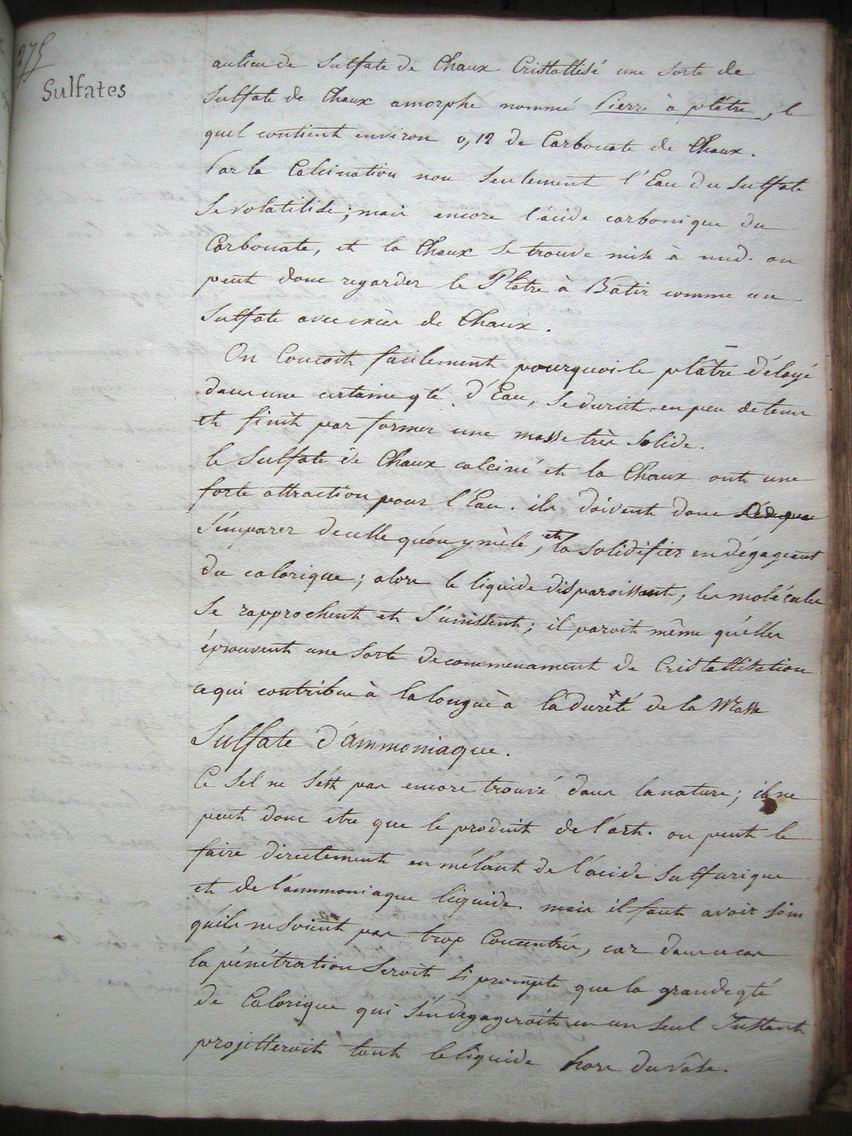 275
Sulfates
aulieu de Sulfate de Chaux Cristallisé une Sorte de
Sulfate de Chaux amorphe nommé Pierre à plâtre, le
quel contient environ 0,12 de Carbonate de Chaux.
Par la Calcination non Seulement l'Eau du Sulfate
Se volatilise; mais encore l'acide carbonique du
Carbonate, et la Chaux Se trouve mise à nud. on
peut donc regarder le Plâtre à Bâtir comme un
Sulfate avec excès de Chaux.
On Conçoit facilement pourquoi le plâtre délayé
dans une certaine qté d'Eau, Se durcit en peu de tems
et finit par former une masse très Solide.
le Sulfate de Chaux calciné et la Chaux ont une
forte attraction pour l'Eau. ils doivent donc
S'emparer de celle qu'on y mêle, et la Solidifier en dégageant
du calorique; alors le liquide disparoissant, les molécules
Se rapprochent et S'unissent; il paroit même qu'elles
éprouvent une Sorte de commencement de Cristallisation
ce qui contribue à la longue à la dureté de la Masse
Sulfate d'ammoniaque.
Ce Sel ne S'est pas encore trouvé dans la nature; il ne
peut donc etre que le produit de l'art. on peut le
faire directement en mélant de l'acide Sulfurique
et de l'ammoniaque liquide. mais il faut avoir Soin
qu'ils ne Soient pas trop Concentrés, car dans ce cas
la pénétration Seroit Si prompte que la grande qté
de Calorique qui S'en dégageroit en un Seul Instant
projetteroit tout le liquide hors du vase.